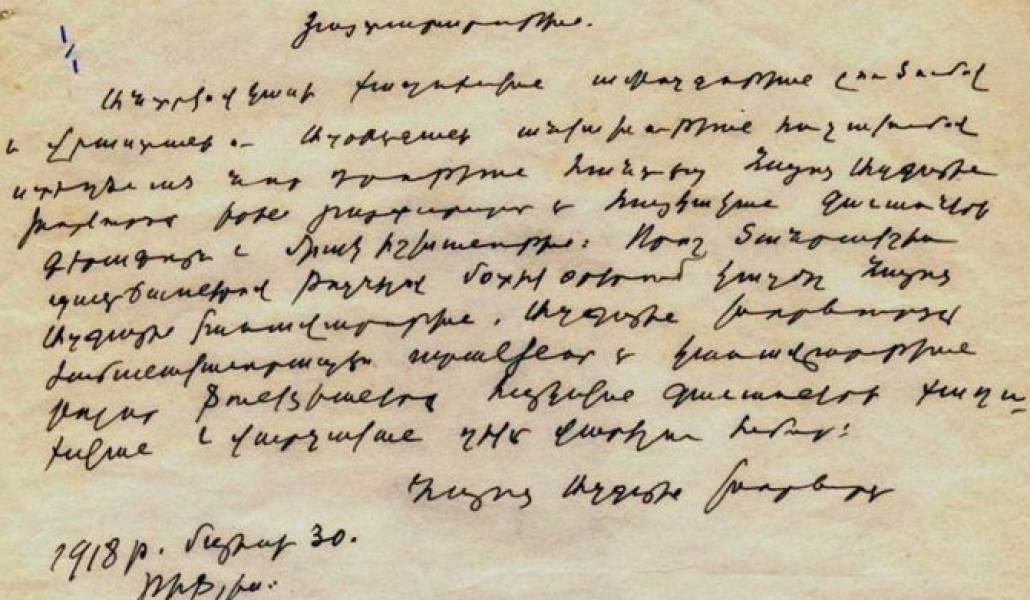 Յայտարարութիւն.
Անդրկովկասի քաղաքական ամբողջութեան լուծումով
և Վրաստանի և Ադրբէջանի անկախութեան հռչակումով
ստեղծուած նոր դրութեան հանդէպ Հայոց Ազգային
Խորհուրդը իրեն յայտարարում է հայկական գաւառների
գերագոյն և միակ իշխանութիւն։ Որոշ ծանրակշիռ
պատճառներով թողնելով մօտիկ օրերում կազմել Հայոց
Ազգային կառավարութիւն, Ազգային Խորհուրդը
ժամանակաւորապէս ստանձնում է կառավարութեան
բոլոր ֆունկցիաները հայկական գաւառների քաղա-
քական և վարչական ղեկը վարելու համար։
Հայոց Ազգային Խորհուրդ
1918 թ. մայիսի 30.
Թիֆլիս.